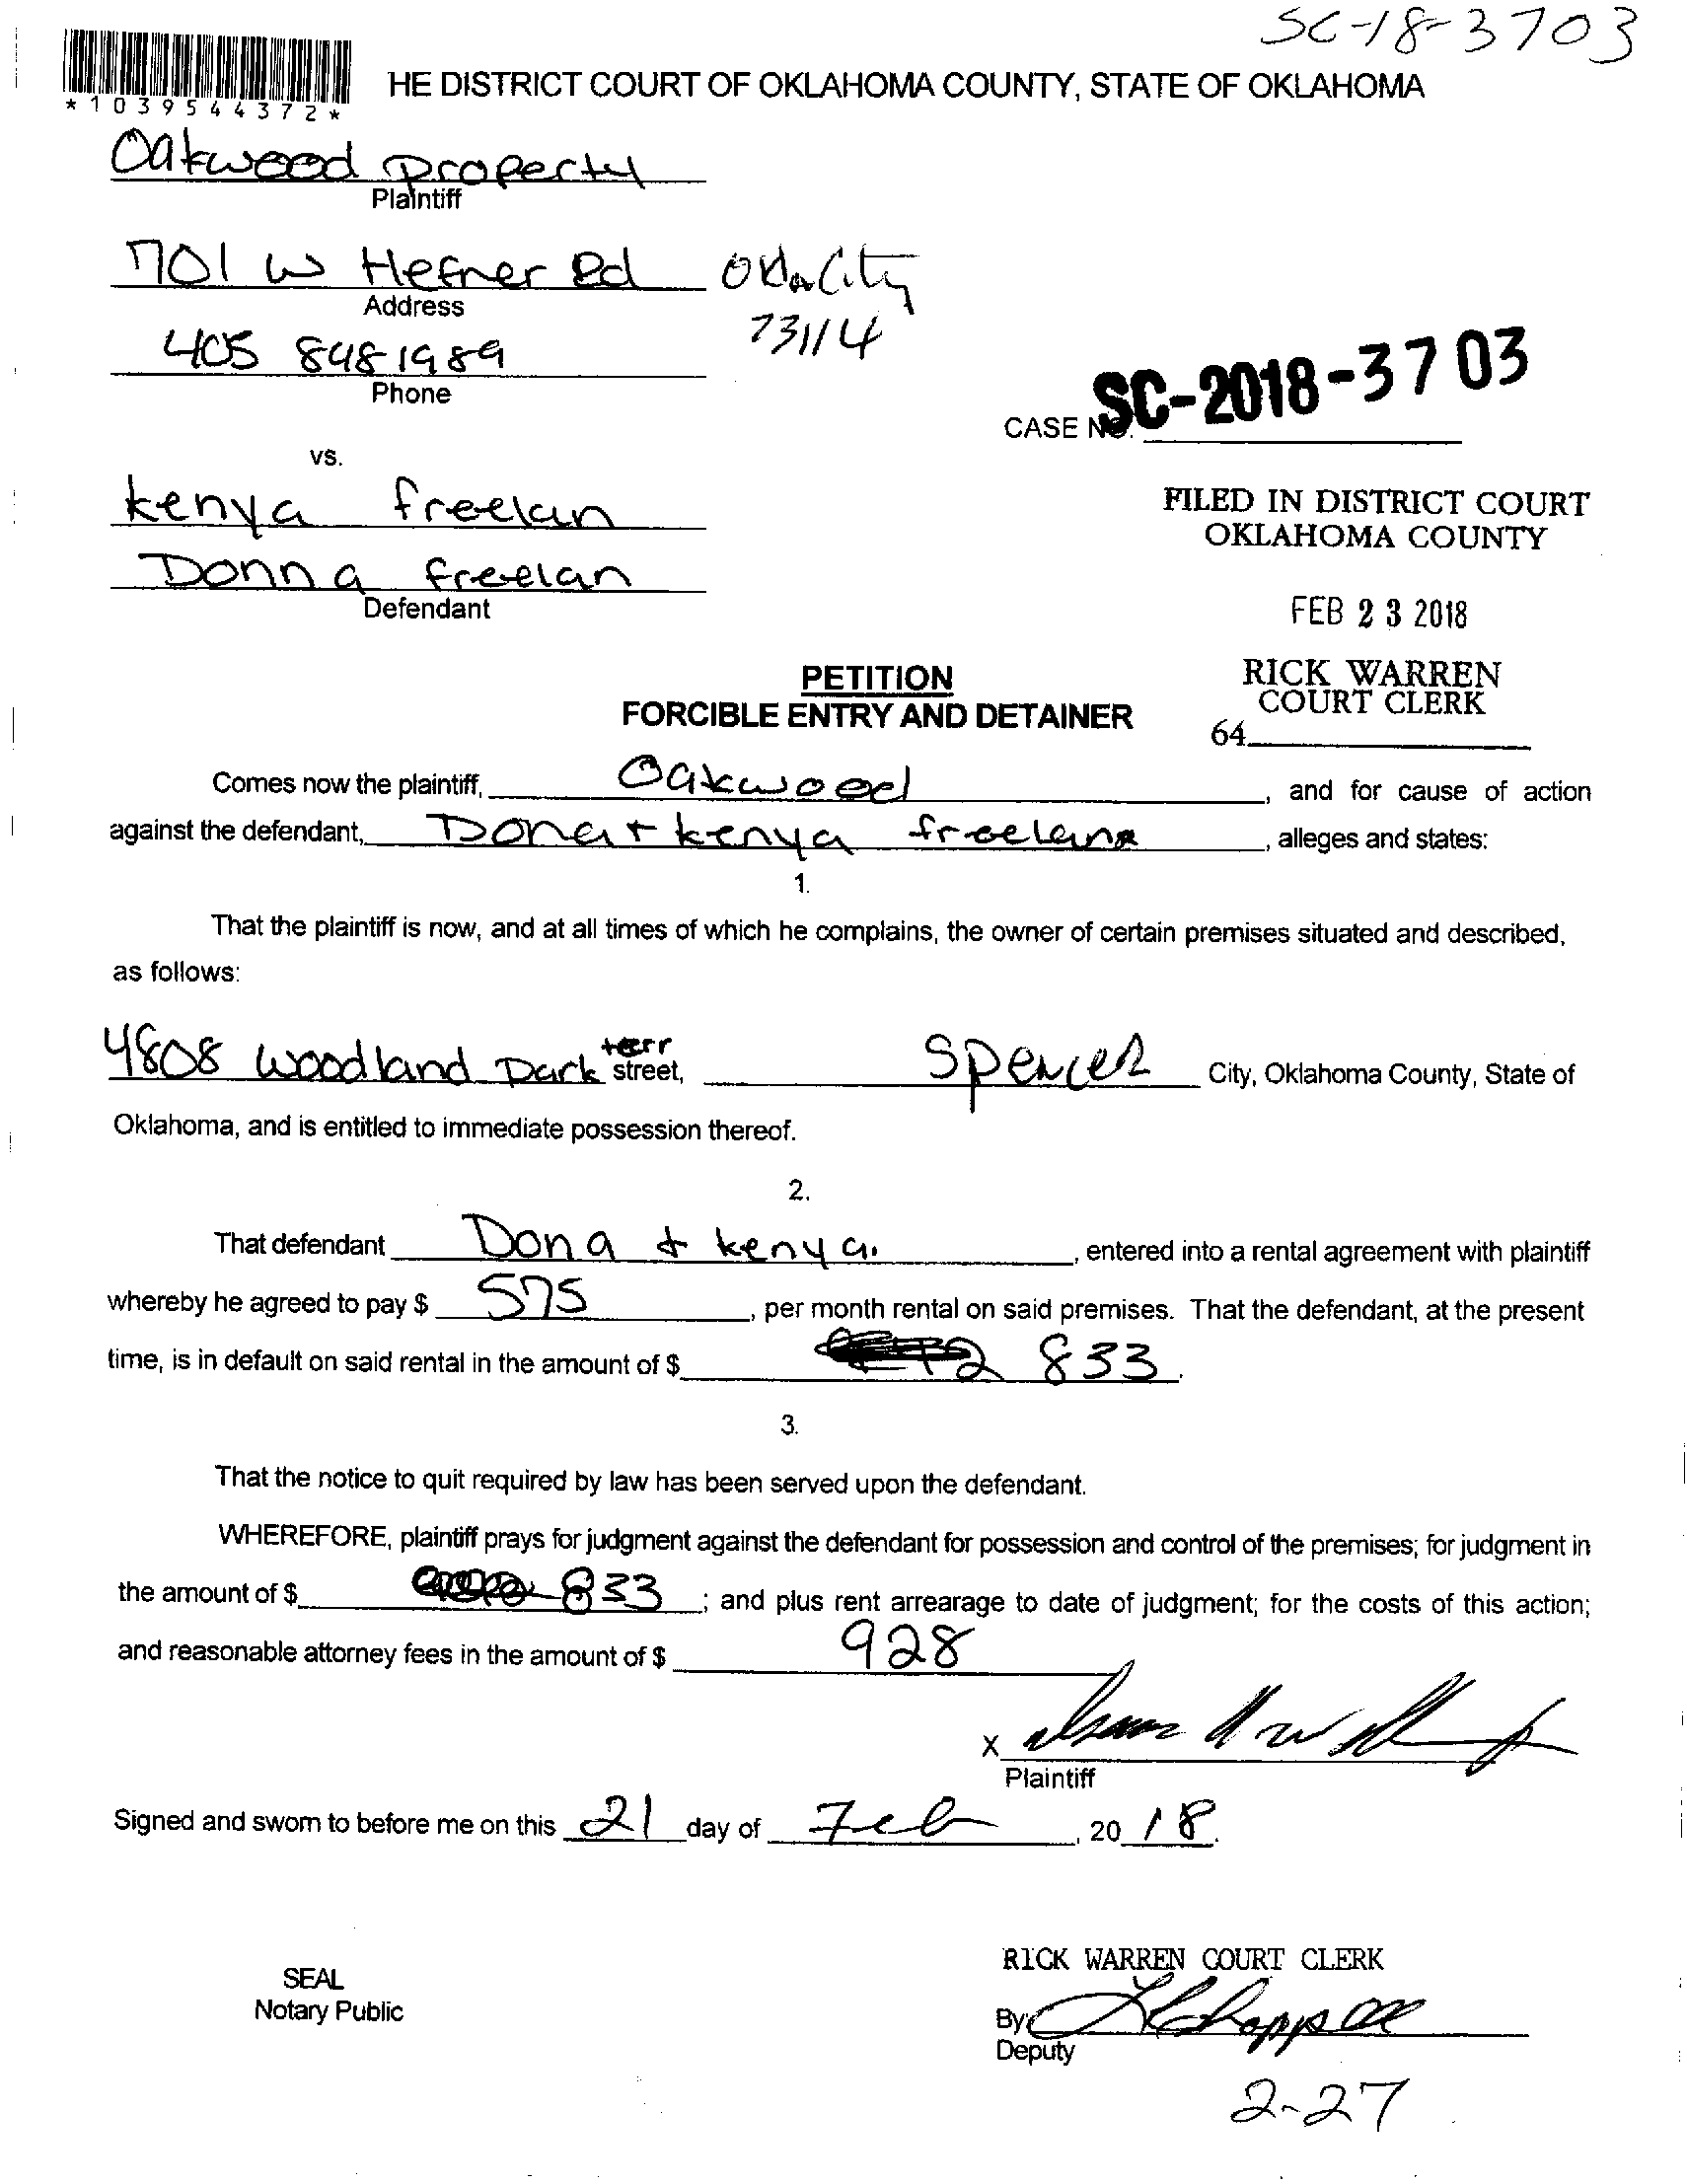 SC-18-3703
HE DISTRICT COURT OF OKLAHOMA COUNTY, STATE OF OKLAHOMA
*1039544372*
Oakwood property
Plaintiff
701 W Hefner Rd Okla City
Address
73114
405 848 1989
Phone
CASE NO. SC-2018-3703
vs.
kenya freelan
Donna freelan
Defendant
FILED IN DISTRICT COURT
OKLAHOMA COUNTY
FEB 23 2018
RICK WARREN
COURT CLERK
64
PETITION
FORCIBLE ENTRY AND DETAINER
Comes now the plaintiff, Oakwood, and for cause of action
against the defendant, Dona + kenya freelana, alleges and states:
1.
That the plaintiff is now, and at all times of which he complains, the owner of certain premises situated and described,
as follows:
4808 woodland Park terr street, Spencer City, Oklahoma County, State of
Oklahoma, and is entitled to immediate possession thereof.
2.
That defendant Dona + kenya, entered into a rental agreement with plaintiff
whereby he agreed to pay $ 575, per month rental on said premises. That the defendant, at the present
time, is in default on said rental in the amount of $ 833.
3.
That the notice to quit required by law has been served upon the defendant.
WHEREFORE, plaintiff prays for judgment against the defendant for possession and control of the premises; for judgment in
the amount of $ 833; and plus rent arrearage to date of judgment; for the costs of this action;
and reasonable attorney fees in the amount of $ 928
X
Plaintiff
Signed and sworn to before me on this 21 day of Feb, 20 18.
SEAL
Notary Public
RICK WARREN COURT CLERK
By
Deputy
2-27